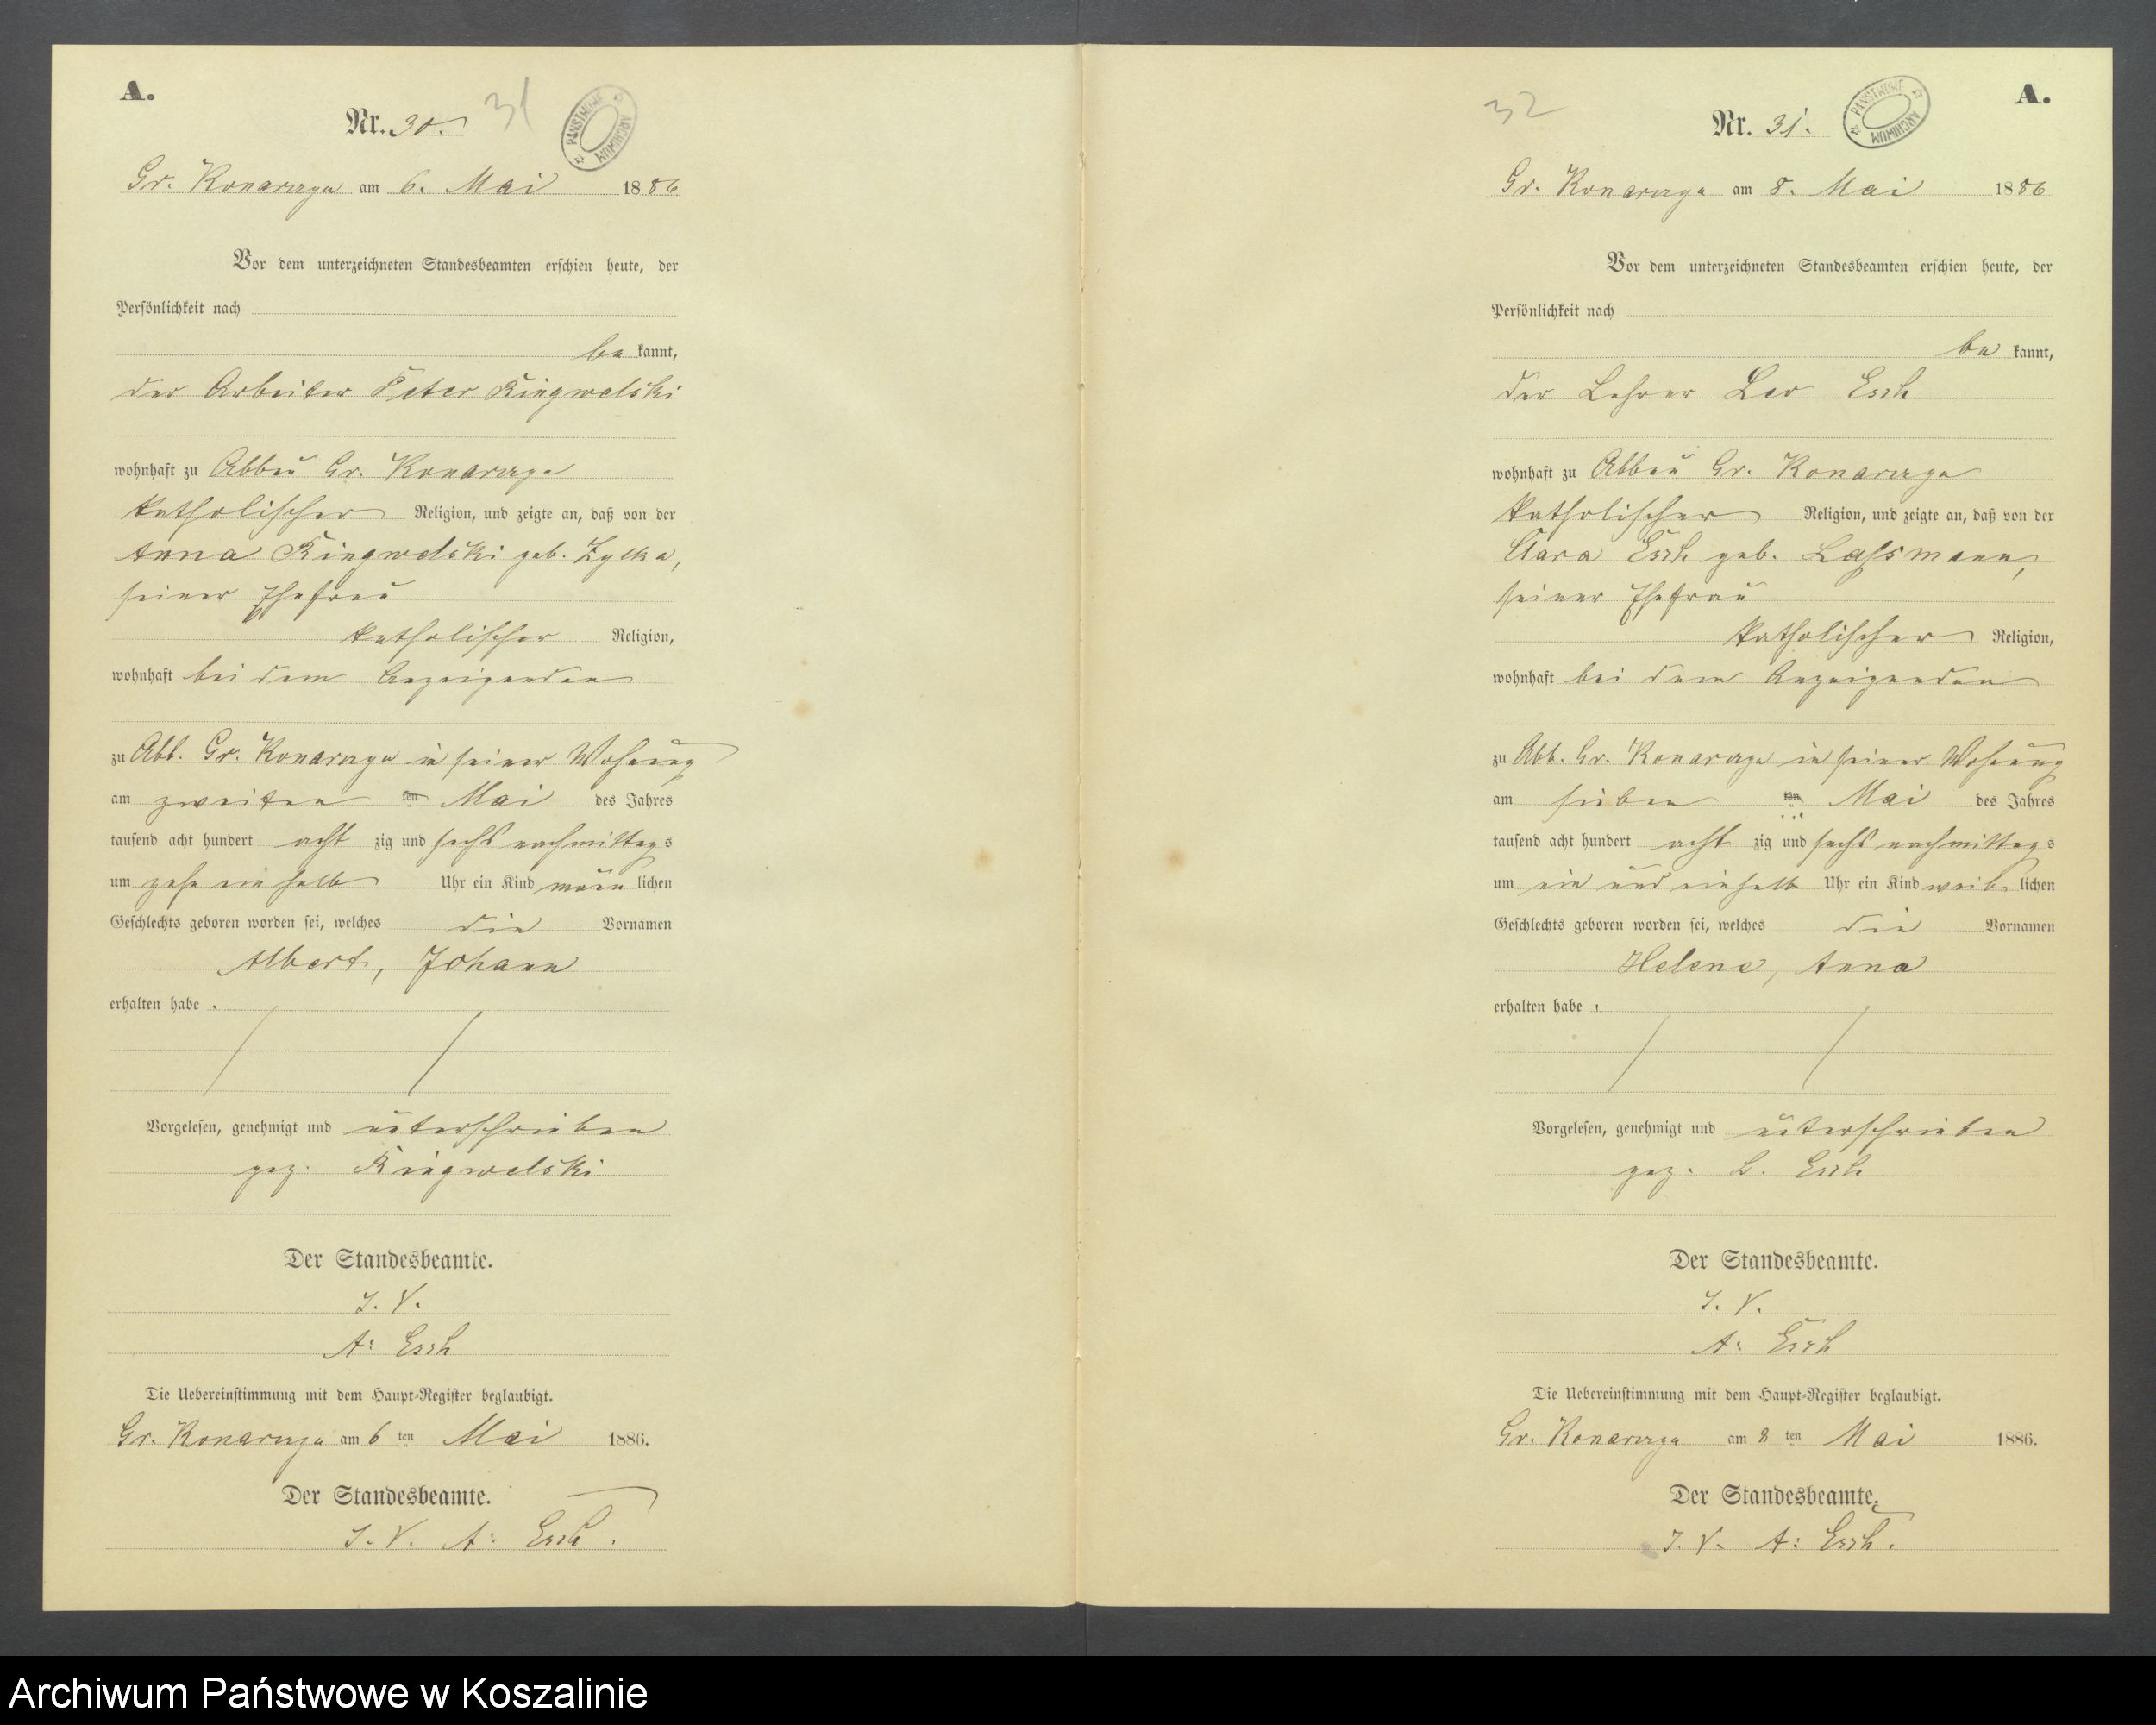 A.
Nr. 30.
31
PAŃSTWOWE ARCHIWUM
Gr. Konarczyn am 6. Mai 1886
Vor dem unterzeichneten Standesbeamten erschien heute, der
Persönlichkeit nach
be kannt,
der Arbeiter Peter Ringwelski
wohnhaft zu Abbau Gr. Konarczyn
katholischer Religion, und zeigte an, daß von der
Anna Ringwelski geb. Zylka,
seiner Ehefrau
katholischer Religion,
wohnhaft bei dem Anzeigenden
zu Abb. Gr. Konarczyn in seiner Wohnung
am zweiten ten Mai des Jahres
tausend acht hundert acht zig und sechs nachmittags
um zehn ein halb Uhr ein Kind männ lichen
Geschlechts geboren worden sei, welches die Vornamen
Albert, Johann
erhalten habe.
Vorgelesen, genehmigt und unterschrieben
gez. Ringwelski
Der Standesbeamte.
I. V.
A: Esch
Die Uebereinstimmung mit dem Haupt-Register beglaubigt.
Gr. Konarczyn am 6 ten Mai 1886.
Der Standesbeamte.
I. V. A: Esch.
A.
32
Nr. 31.
PAŃSTWOWE ARCHIWUM
Gr. Konarczyn am 8. Mai 1886
Vor dem unterzeichneten Standesbeamten erschien heute, der
Persönlichkeit nach
be kannt,
der Lehrer Leo Esch
wohnhaft zu Abbau Gr. Konarczyn
katholischer Religion, und zeigte an, daß von der
Clara Esch geb. Lassmann,
seiner Ehefrau
katholischer Religion,
wohnhaft bei dem Anzeigenden
zu Abb. Gr. Konarczyn in seiner Wohnung
am sieben ten Mai des Jahres
tausend acht hundert acht zig und sechs nachmittags
um ein und ein halb Uhr ein Kind weib lichen
Geschlechts geboren worden sei, welches die Vornamen
Helene, Anna
erhalten habe.
Vorgelesen, genehmigt und unterschrieben
gez. L. Esch
Der Standesbeamte.
I. V.
A: Esch
Die Uebereinstimmung mit dem Haupt-Register beglaubigt.
Gr. Konarczyn am 8 ten Mai 1886.
Der Standesbeamte.
I. V. A: Esch.
Archiwum Państwowe w Koszalinie